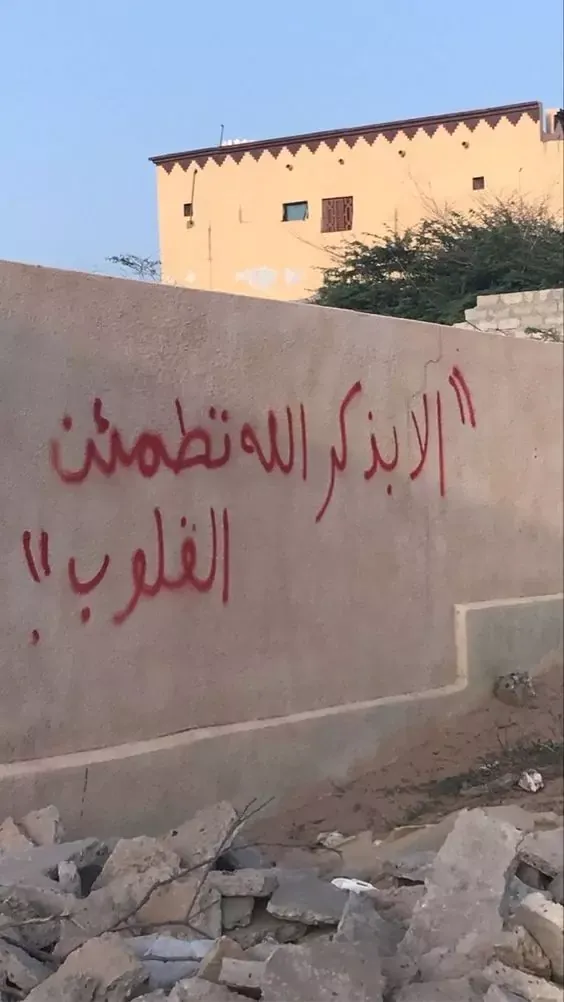 "الا بذكر الله تطمئن
القلوب".